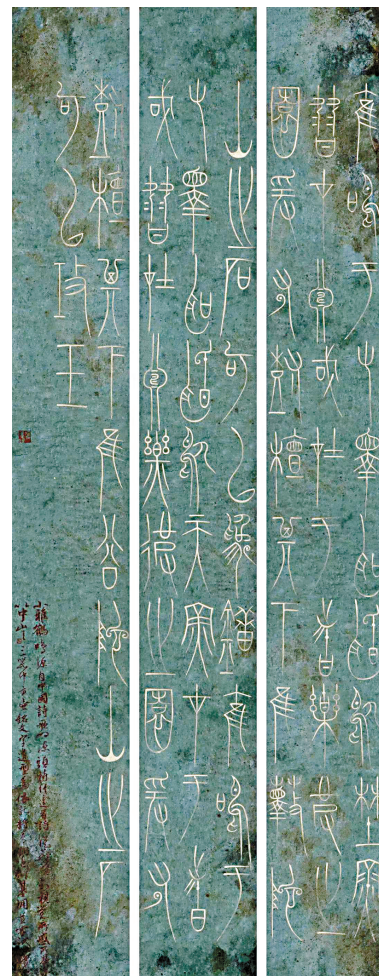 鶴鳴于九皋聲聞于野魚
潛在淵或在于渚樂彼之
園爰有樹檀其下維蘀它
山之石可以為錯鶴鳴于
九皋聲聞于天魚在于渚
或潛在淵樂彼之園爰有
樹檀其下維榖它山之石
可以攻玉
小雅鶴鳴源自中國詩歌源頭詩經